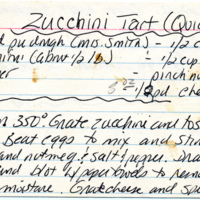 Zucchini Tart (Qui
pie dough (Mrs. Smith) - 1/2 c
ini (about 1/2 lb) - 1/2 cup
er - pinch nu
5 oz 1/2 pd che
350° Grate zucchini and tos
Beat eggs to mix and stir
and nutmeg & salt & pepper. Dra
and blot w/ paper towels to rem
mixture. Grate cheese and sp